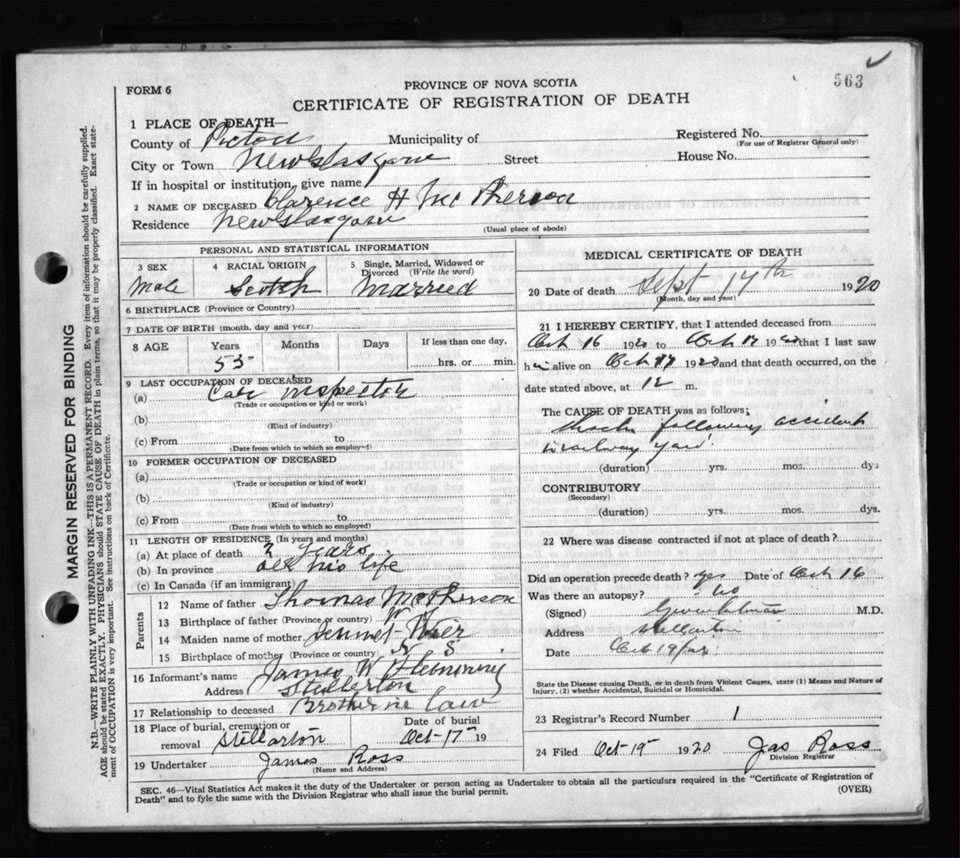 563
FORM 6
PROVINCE OF NOVA SCOTIA
CERTIFICATE OF REGISTRATION OF DEATH
1 PLACE OF DEATH—
County of Pictou Municipality of Registered No.
(For use of Registrar General only)
City or Town New Glasgow Street House No.
If in hospital or institution, give name
2 NAME OF DECEASED Clarence H McPherson
Residence New Glasgow
(Usual place of abode)
PERSONAL AND STATISTICAL INFORMATION
3 SEX 4 RACIAL ORIGIN 5 Single, Married, Widowed or Divorced (Write the word)
Male Scotch Married
6 BIRTHPLACE (Province or Country)
7 DATE OF BIRTH (month, day and year)
8 AGE Years Months Days If less than one day,
53 hrs. or min.
9 LAST OCCUPATION OF DECEASED
(a) Car inspector
(Trade or occupation or kind or work)
(b)
(Kind of industry)
(c) From to
(Date from which to which so employed)
10 FORMER OCCUPATION OF DECEASED
(a)
(Trade or occupation or kind of work)
(b)
(Kind of industry)
(c) From to
(Date from which to which so employed)
11 LENGTH OF RESIDENCE (In years and months)
(a) At place of death 2 years
(b) In province all his life
(c) In Canada (if an immigrant)
Parents
12 Name of father Thomas McPherson
13 Birthplace of father (Province or country) N S
14 Maiden name of mother
15 Birthplace of mother (Province or country) N S
16 Informant's name James W Flemming
Address Stellarton
17 Relationship to deceased Brother in law
18 Place of burial, cremation or removal Stellarton Date of burial Oct-17 19
19 Undertaker James Ross
(Name and Address)
MEDICAL CERTIFICATE OF DEATH
20 Date of death Sept 17th 1920
(Month, day and year)
21 I HEREBY CERTIFY, that I attended deceased from
Oct 16 1920 to Oct 17 1920 that I last saw
him alive on Oct 17 1920 and that death occurred, on the
date stated above, at 12 m.
The CAUSE OF DEATH was as follows;
Shock following accident
in railway yard
(duration) yrs. mos. dys
CONTRIBUTORY
(Secondary)
(duration) yrs. mos. dys.
22 Where was disease contracted if not at place of death?
Did an operation precede death? yes Date of Oct 16
Was there an autopsy? no
(Signed) M.D.
Address Stellarton
Date Oct 19
State the Disease causing Death, or in death from Violent Causes, state (1) Means and Nature of
Injury, (2) whether Accidental, Suicidal or Homicidal.
23 Registrar's Record Number 1
24 Filed Oct 19 1920 Jas Ross
Division Registrar
SEC. 46—Vital Statistics Act makes it the duty of the Undertaker or person acting as Undertaker to obtain all the particulars required in the "Certificate of Registration of
Death" and to fyle the same with the Division Registrar who shall issue the burial permit. (OVER)
MARGIN RESERVED FOR BINDING
N.B.—WRITE PLAINLY WITH UNFADING INK—THIS IS A PERMANENT RECORD. Every item of information should be carefully supplied.
AGE should be stated EXACTLY. PHYSICIANS should STATE CAUSE OF DEATH in plain terms, so that it may be properly classified. Exact state-
ment of OCCUPATION is very important. See instructions on back of Certificate.